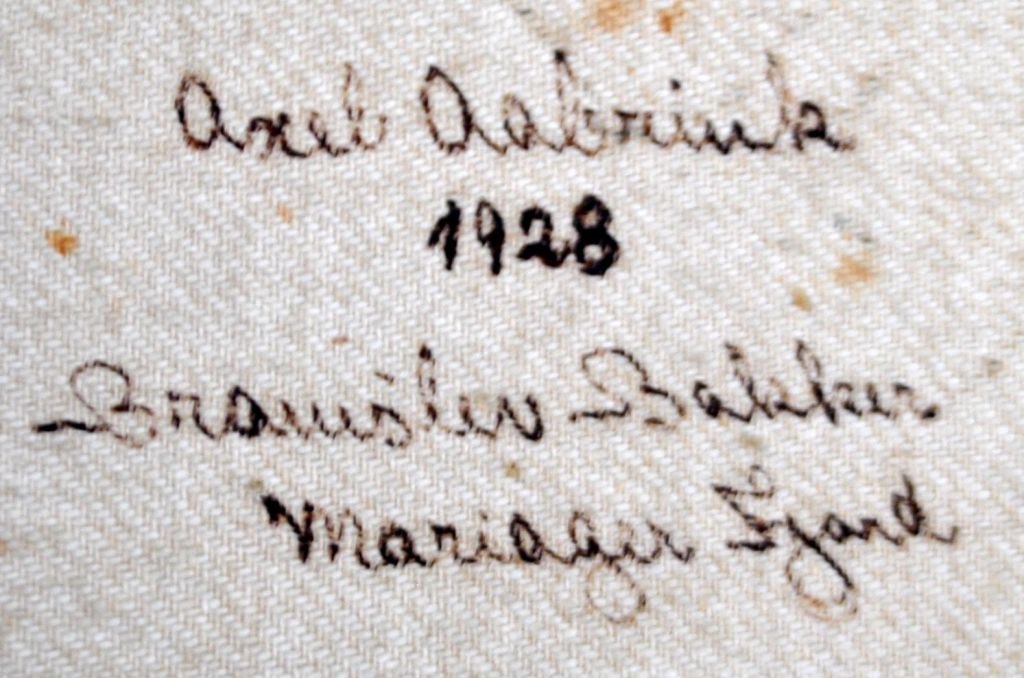 Axel Aabrink
1928
Branislev Bakker
Mariager Fjard